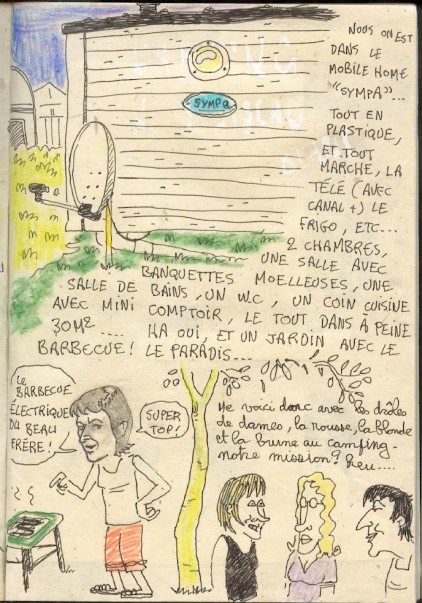 NOUS ON EST
DANS LE
MOBILE HOME
"SYMPA"...
TOUT EN
PLASTIQUE,
ET TOUT
MARCHE, LA
TÉLÉ (AVEC
CANAL+) LE
FRIGO, ETC...
2 CHAMBRES,
UNE SALLE AVEC
BANQUETTES MOELLEUSES, UNE
SALLE DE BAINS, UN WC, UN COIN CUISINE
AVEC MINI COMPTOIR, LE TOUT DANS À PEINE
30M2 .... HA OUI, ET UN JARDIN AVEC LE
BARBECUE! LE PARADIS...
SYMPA
LE
BARBECUE
ÉLECTRIQUE
DU BEAU
FRÈRE!
SUPER
TOP!
Me voici donc avec les drôles
de dames, la rousse, la blonde
et la brune au camping-
notre mission? heu....